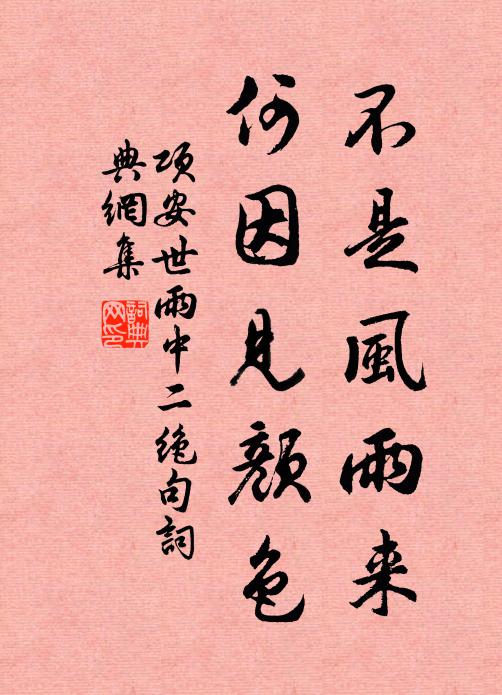 不是風雨来
何因見顔色
項安世雨中二絶句詞
典網集
詞典
网印